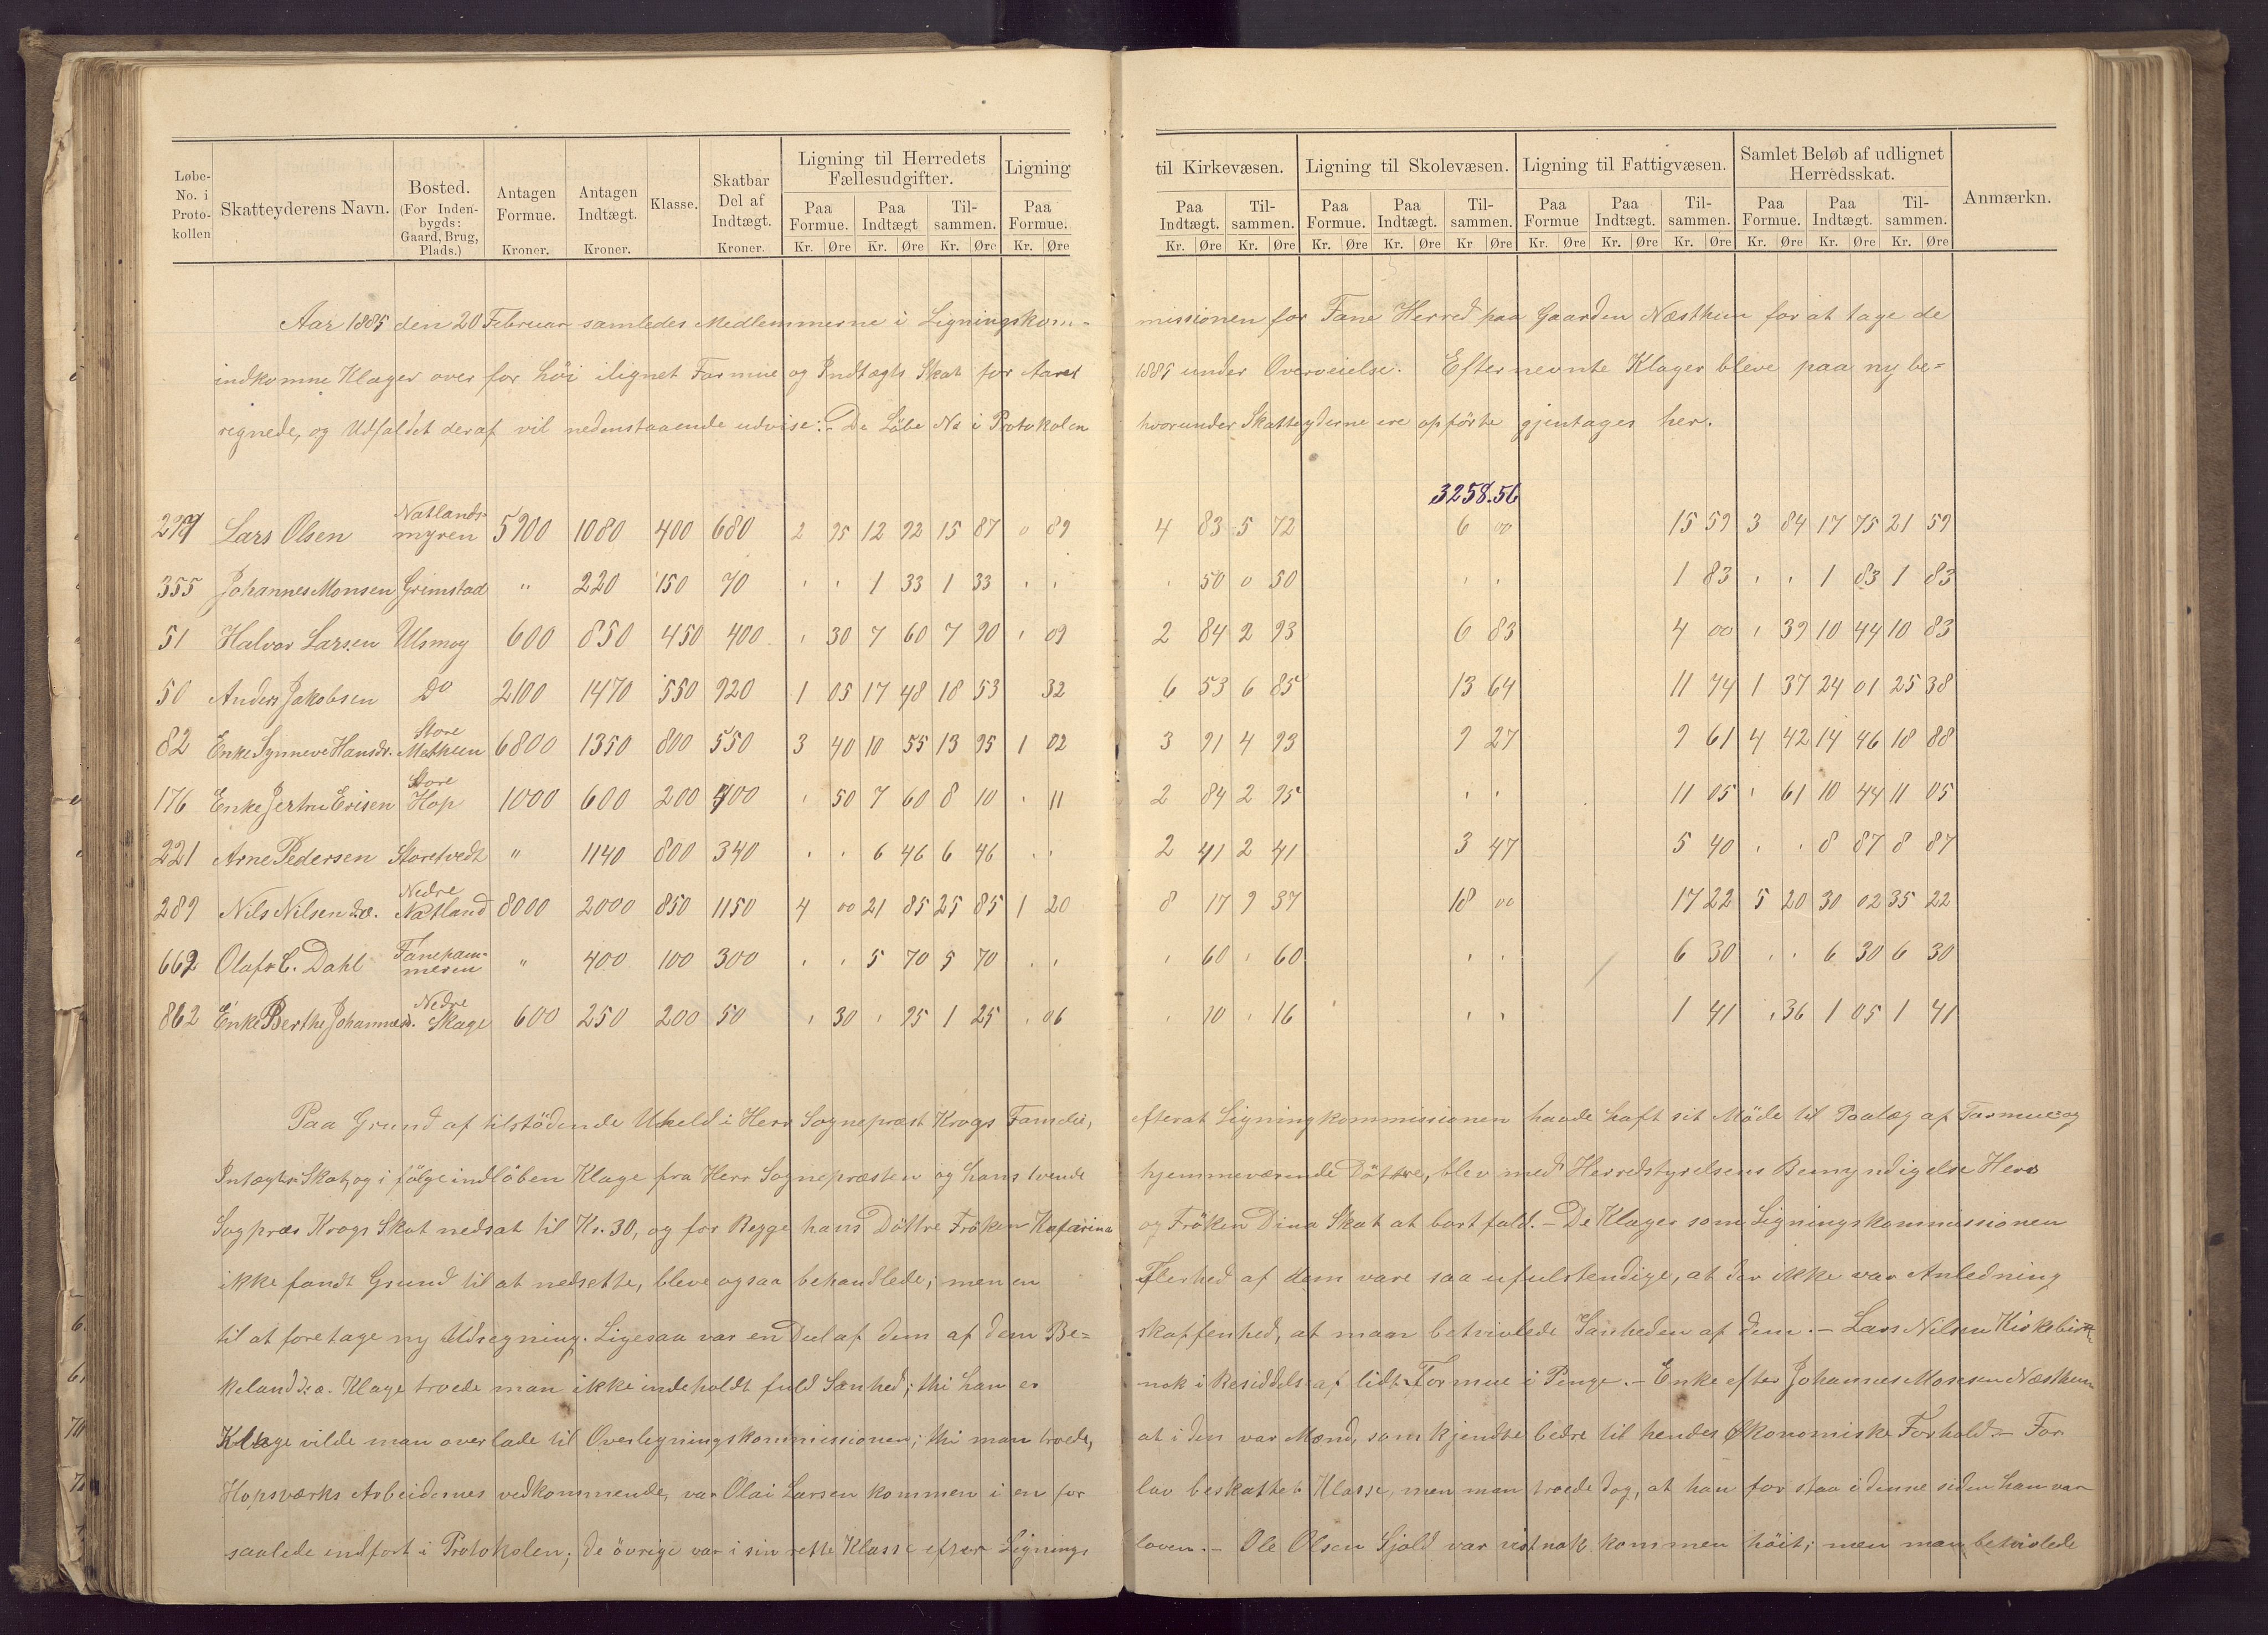 Løbe-No. i Proto-kollen | Skatteyderens Navn. | Bosted. (For Inden-bygds: Gaard, Brug, Plads.) | Antagen Formue. Kroner. | Antagen Indtægt. Kroner. | Klasse. | Skatbar Del af Indtægt. Kroner. | Ligning til Herredets Fællesudgifter. | Ligning til Kirkevæsen. | Ligning til Skolevæsen. | Ligning til Fattigvæsen. | Samlet Beløb af udlignet Herredsskat. | Anmærkn.
Paa Formue. | Paa Indtægt | Til-sammen. | Paa Formue. | Paa Indtægt. | Til-sammen. | Paa Formue. | Paa Indtægt. | Til-sammen. | Paa Formue | Paa Indtægt. | Til-sammen. | Paa Formue. | Paa Indtægt. | Til-sammen.
Kr. Øre | Kr. Øre | Kr. Øre | Kr. Øre | Kr. Øre | Kr. Øre | Kr. Øre | Kr. Øre | Kr Øre | Kr. Øre | Kr. Øre | Kr. Øre | Kr. Øre | Kr. Øre | Kr. Øre
Aar 1885 den 20 Februar samledes Medlemmerne i Ligningskom- missionen for Fane Herred paa Gaarden Næsthun for at tage de
indkomne Klager over for höi ilignet Formue og Indtægts Skat for Aaret 1885 under Overveielse. Efternevnte Klager bleve paa ny be=
regnede, og Udfaldet deraf vil nedenstaaende udvise:- De Löbe No i Protokolen hvorunder Skatteyderne ere opförte gjentages her.
3258.56
277 Lars Olsen Natlands-myren 5900 1080 400 680 2 95 12 92 15 87 0 89 4 83 5 72 6 00 15 59 3 84 17 75 21 59
355 Johannes Monsen Grimstad " 220 150 70 1 33 1 33 50 0 50 1 83 1 83 1 83
51 Halvor Larsen Ulsmog 600 850 450 400 30 7 60 7 90 09 2 84 2 93 6 83 4 00 39 10 44 10 83
50 Anders Jakobsen Do 2100 1470 550 920 1 05 17 48 18 53 32 6 53 6 85 13 64 11 74 1 37 24 01 25 38
82 Enke Synneve Hansdr. Store Matheen 6800 1350 800 550 3 40 10 55 13 95 1 02 3 91 4 93 9 27 9 61 4 42 14 46 18 88
176 Enke Jertru Erisen Store Hop 1000 600 200 400 50 7 60 8 10 11 2 84 2 95 11 05 61 10 44 11 05
221 Arne Pedersen Storetvedt " 1140 800 340 6 46 6 46 2 41 2 41 3 47 5 40 8 87 8 87
289 Nils Nilsen d.æ. Nedre Natland 8000 2000 850 1150 4 00 21 85 25 85 1 20 8 17 9 37 18 00 17 22 5 20 30 02 35 22
662 Olaf C. Dahl Faneham-meren " 400 100 300 5 70 5 70 60 60 6 30 6 30 6 30
862 Enke Berthe Johannesd. Nedre Skage 600 250 200 50 30 95 1 25 06 10 16 1 41 36 1 05 1 41
Paa Grund af tilstödende Uheld i Herr Sognepræst Krogs Familie, efterat Ligningkommissionen havde haft sit Möde til Paalæg af Formue og
Intægts Skat, og i fölge indlöben Klage fra Herr Sognepræsten og hans tvende hjemmeværende Döttre, blev med Herredstyrelsens Bemyndigelse Herr
Sogpræs Krogs Skat nedsat til Kr. 30, og for Begge hans Döttre Fröken Kafarina og Fröken Dina Skat at bortfald. - De Klager som Ligningskommissionen
ikke fandt Grund til at nedsette, bleve ogsaa behandlede; men en Flerhed af dem vare saa ufulstendige, at der ikke var Anledning
til at foretage ny Udregning. Ligesaa var en Deel af dem af dem Be= skaffenhed, at man betvivlede Sanheden af dem. - Lars Nilsen Kirkebir
keland d.æ. Klage troede man ikke indeholdt fuld Sanhed; thi han er nok i Besiddelse af lidt Formue i Penge. - Enke efter Johannes Monsen Næsthun
Klage vilde man overlade til Overligningskommissionen; thi man troede, at i den var Mænd, som kjendte bedre til hendes Økonomiske Forhold. - For
Hopsværks Arbeidernes vedkommende, var Olai Larsen kommen i en for lav beskattet Klasse, men man troede dog, at han for staa i denne siden han var
saalede indfort i Protokolen; de övrige var i sin rette Klasse efter Lignings loven. - Ole Olsen Sjold var vistnok kommen höit; men man betvivlede